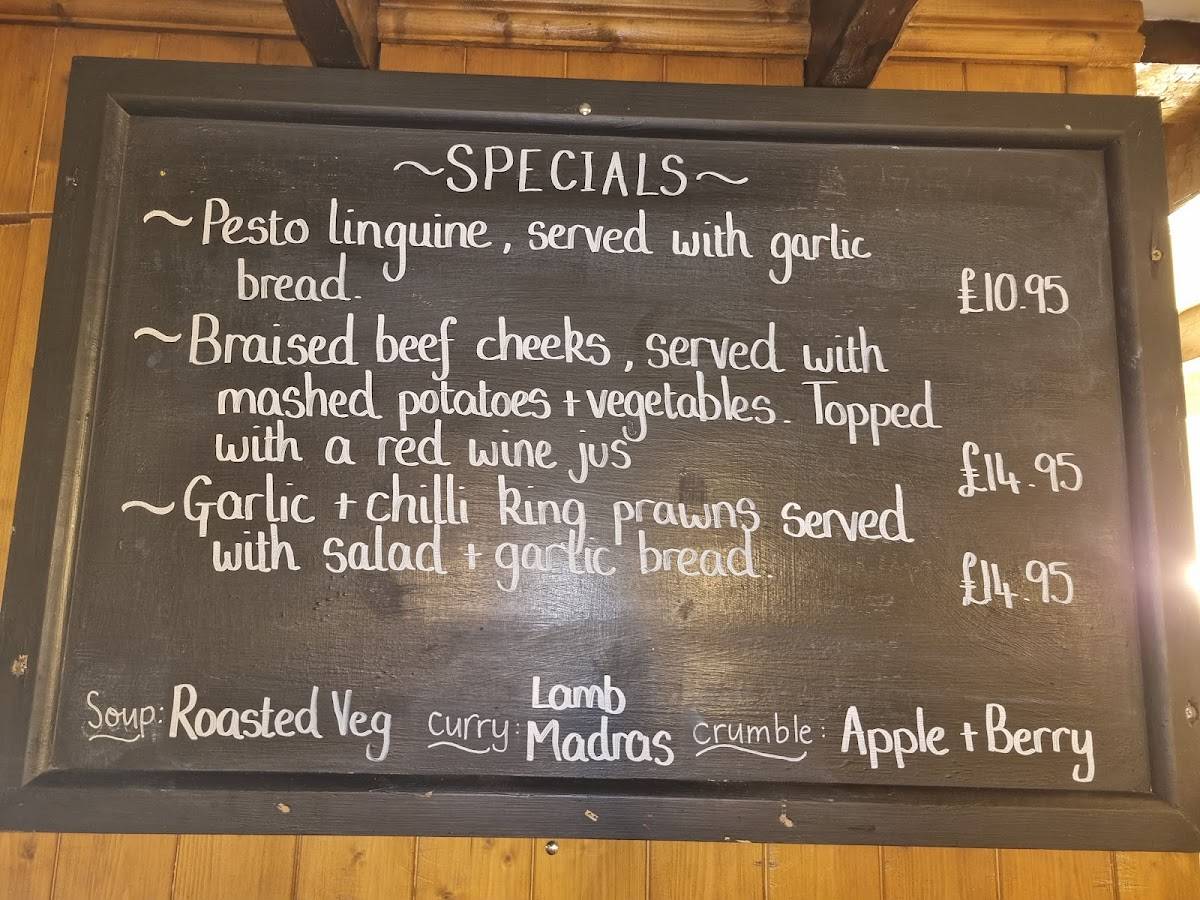 ~SPECIALS~
~Pesto linguine, served with garlic
bread.
£10.95
~Braised beef cheeks, served with
mashed potatoes + vegetables. Topped
with a red wine jus
£14.95
~Garlic + chilli king prawns served
with salad + garlic bread.
£14.95
Soup: Roasted Veg
curry: Lamb
Madras
crumble: Apple + Berry